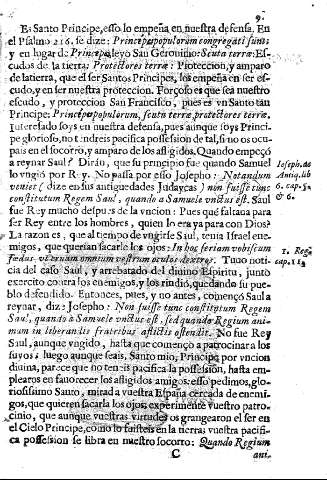 9.
Es Santo Principe, esso lo empeña en nuestra defensa. En
el Psalmo 216. se dize: Principes populorum congregati sunt:
y en lugar de Principes, leyò San Geronimo: Scuta terræ: Es-
cudos de la tierra; Protectores terræ: Proteccion, y amparo
de la tierra, que el ser Santos Principes, los empeña en ser es-
cudo, y en ser nuestra proteccion. Forçoso es que sea nuestro
escudo, y proteccion San Francisco, pues es vn Santo tan
Principe: Principes populorum, scuta terræ protectores terræ.
Interesado soys en nuestra defensa, pues aunque soys Princi-
pe glorioso, no tendreis pacifica possesion de tal, si no os ocu-
pais en el socorro, y amparo de los afligidos. Quando empeçò
a reynar Saul? Diràn, que su principio fue quando Samuel
lo vngiò por Rey. No passa por esso Josepho: Notandum
venies (dize en sus antiguedades Judaycas) non fuisse tunc
constitutum Regem Saul, quando a Samuele vnctus est. Saul
fue Rey mucho despues de la vncion: Pues què faltaua para
ser Rey entre los hombres, quien lo era ya para con Dios?
La razon es, que al tiempo de vngirse Saul, tenia Israel ene-
migos, que querian sacarle los ojos: In hoc feriam vobiscum
fœdus vt eruam omnium vestrum oculos dextros. Tuuo noti-
cia del caso Saul, y arrebatado del diuino Espiritu, juntò
exercito contra los enemigos, y los rindiò, quedando su pue-
blo defendido. Entonces, pues, y no antes, començò Saul a
reynar, dize Josepho: Non fuisse tunc constitutum Regem
Saul, quando à Samuele vnctus est, sed quando Regium ani-
mum in liberandis fratribus aflictis ostendit. No fue Rey
Saul, aunque vngido, hasta que començò a patrocinar a los
suyos: luego aunque seais, Santo mio, Principe por vncion
diuina, parece que no teneis pacifica la possesion, hasta em-
plearos en fauorecer los afligidos amigos: esso pedimos, glo-
riosissimo Santo, mirad a vuestra España cercada de enemi-
gos, que quieren sacarla los ojos; experimente vuestro patro-
cinio, que aunque vuestras virtudes os grangearon el ser en
el Cielo Principe, como lo fuisteis en la tierra; vuestra pacifi-
ca possesion se libra en nuestro socorro: Quando Regium
C ani-
Joseph. de
Antiq. lib
6. cap. 5.
& 6.
1. Reg.
cap. 11.